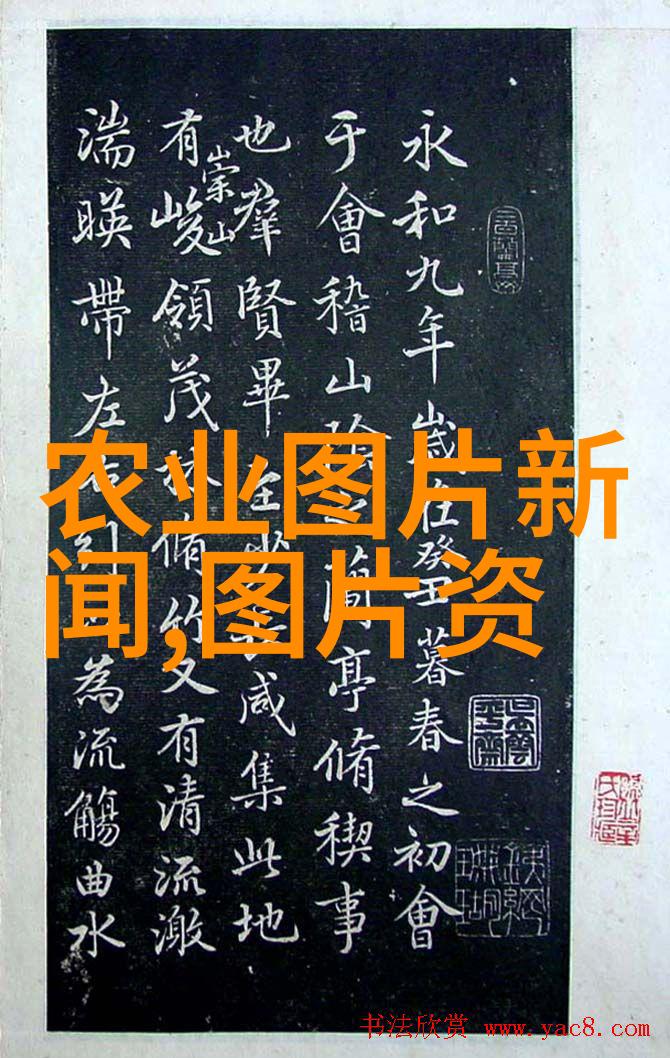 永和九年歲在癸丑暮春之初會
于會稽山陰之蘭亭脩稧事
也羣賢畢至少長咸集此地
有崇山峻領茂林脩竹又有清流激
湍暎帶左右引以為流觴曲水
农业图片新
闻,图片资
书法欣赏 www.yac8.com